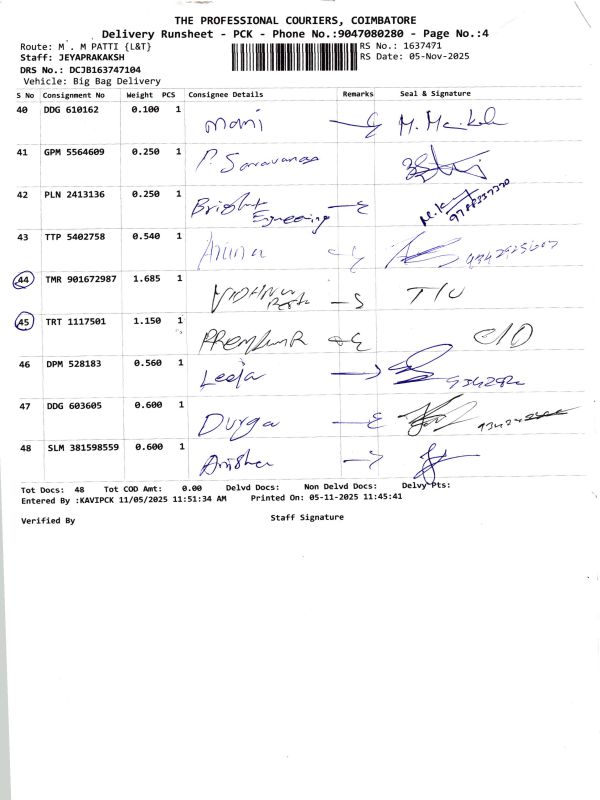 THE PROFESSIONAL COURIERS, COIMBATORE
Delivery Runsheet - PCK - Phone No.:9047080280 - Page No.:4
Route: M . M PATTI {L&T} RS No.: 1637471
Staff: JEYAPRAKAKSH RS Date: 05-Nov-2025
DRS No.: DCJB163747104
Vehicle: Big Bag Delivery
S No Consignment No Weight PCS Consignee Details Remarks Seal & Signature
40 DDG 610162 0.100 1 mani
41 GPM 5564609 0.250 1 P. Saravanan
42 PLN 2413136 0.250 1 Bright Engineering
43 TTP 5402758 0.540 1
44 TMR 901672987 1.685 1
45 TRT 1117501 1.150 1
46 DPM 528183 0.560 1 Leeja
47 DDG 603605 0.600 1 Durga
48 SLM 381598559 0.600 1
Tot Docs: 48 Tot COD Amt: 0.00 Delvd Docs: Non Delvd Docs: Delvy Pts:
Entered By :KAVIPCK 11/05/2025 11:51:34 AM Printed On: 05-11-2025 11:45:41
Verified By Staff Signature